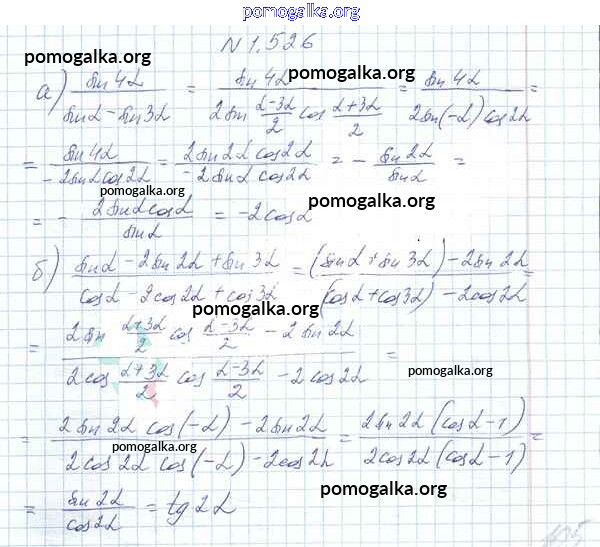 pomogalka.org
N 1.526
pomogalka.org
pomogalka.org
а) sin 4α / (sin α - sin 3α) = sin 4α / (2 sin (α-3α)/2 cos (α+3α)/2) = sin 4α / (2 sin(-α) cos 2α) =
= sin 4α / (-2 sin α cos 2α) = 2 sin 2α cos 2α / (-2 sin α cos 2α) = - sin 2α / sin α =
pomogalka.org
pomogalka.org
= - 2 sin α cos α / sin α = -2 cos α
б) (sin α - 2 sin 2α + sin 3α) / (cos α - 2 cos 2α + cos 3α) = ((sin α + sin 3α) - 2 sin 2α) / ((cos α + cos 3α) - 2 cos 2α) =
pomogalka.org
= (2 sin (α+3α)/2 cos (α-3α)/2 - 2 sin 2α) / (2 cos (α+3α)/2 cos (α-3α)/2 - 2 cos 2α) =
pomogalka.org
= (2 sin 2α cos(-α) - 2 sin 2α) / (2 cos 2α cos(-α) - 2 cos 2α) = 2 sin 2α (cos α - 1) / (2 cos 2α (cos α - 1)) =
pomogalka.org
= sin 2α / cos 2α = tg 2α
pomogalka.org